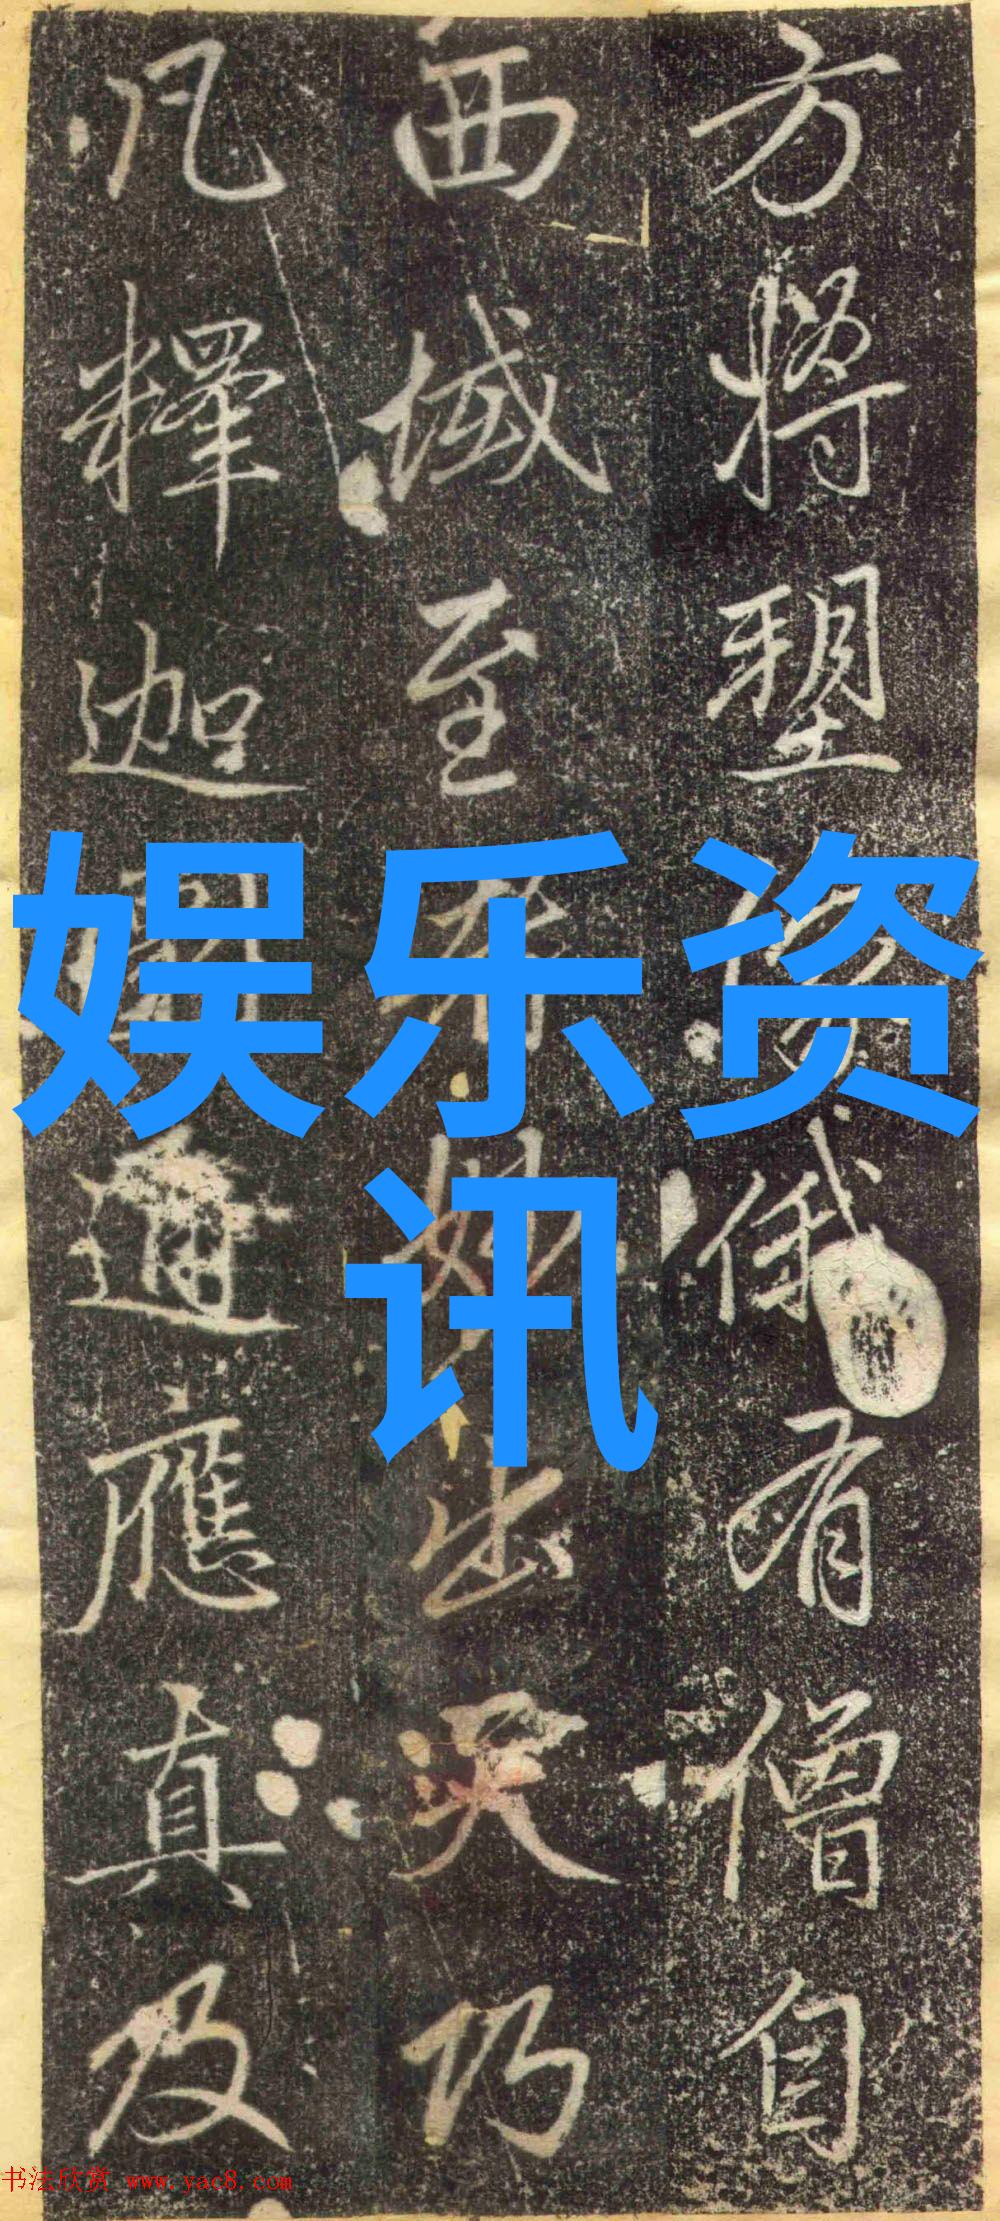 方將塑俄有僧自
西域至妙出天巧
凡釋迦應真及
娱乐资
讯
书法欣赏 www.yac8.com